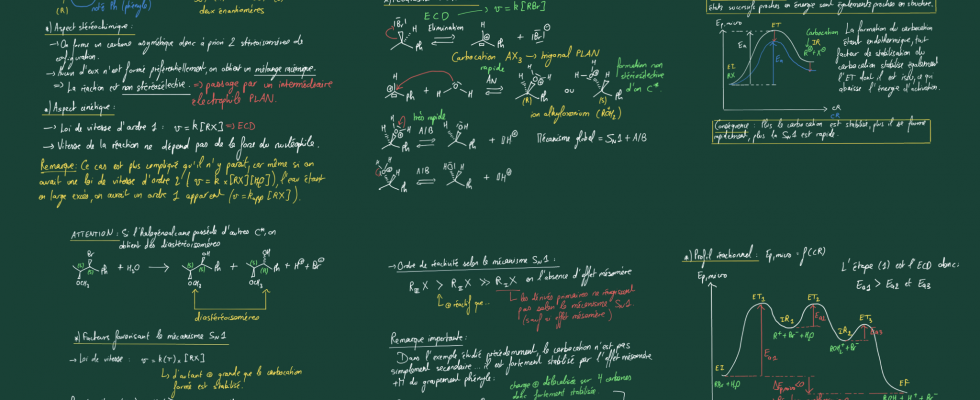 (R)
noté Ph (phényle)
deux énantiomères
a) Aspect stéréochimique :
→ On forme un carbone asymétrique donc à priori 2 stéréoisomères de
configuration.
→ Aucun d'eux n'est formé préférentiellement, on obtient un mélange racémique.
⇒ La réaction est non stéréosélective. ⇒ passage par un intermédiaire
électrophile PLAN.
a) Aspect cinétique :
→ Loi de vitesse d'ordre 1 : v = k[RX] ⇒ ECD
→ Vitesse de la réaction ne dépend pas de la force du nucléophile.
Remarque : Ce cas est plus compliqué qu'il n'y paraît, car même si on
avait une loi de vitesse d'ordre 2 (v = k × [RX][H₂O]), l'eau étant
en large excès, on aurait un ordre 1 apparent (v = k app [RX]).
ATTENTION : Si l'halogénoalcane possède d'autres C*, on
obtient des diastéréoisomères
Br
Ph + H₂O → Ph + Ph + H⁺ + Br⁻
OCH₃
diastéréoisomères
a) Facteurs favorisant le mécanisme SN1
→ Loi de vitesse : v = k(T) × [RX]
d'autant ⊕ grande que le carbocation
formé est stabilisé.
ECD → v = k[RBr]
Élimination
Ph
Carbocation AX₃ → trigonal PLAN
rapide
AN
ou
(R)
(S)
formation non
stéréosélective
d'un C*
ion alkyloxonium (ROH₂⁺)
très rapide
A/B
+ OH
Mécanisme global = SN1 + A/B
A/B
+ OH
→ Ordre de réactivité selon le mécanisme SN1 :
R III X > R II X >> R I X en l'absence d'effet mésomère
⊕ réactif que...
les dérivés primaires ne réagissent
pas selon le mécanisme SN1
(sauf si effet mésomère)
Remarque importante :
Dans l'exemple étudié précédemment, le carbocation n'est pas
simplement secondaire... il est fortement stabilisé par l'effet mésomère
+M du groupement phényle :
charge ⊕ délocalisée sur 4 carbones
donc fortement stabilisée
états successifs proches en énergie sont également proches en structure.
Ep,micro
ET
Ea
EI
RX
Carbocation
IR
CR
La formation du carbocation
étant endothermique, tout
facteur de stabilisation du
carbocation stabilise également
l'ET dont il est issu, ce qui
abaisse l'énergie d'activation.
Conséquence : Plus le carbocation est stabilisé, plus il se forme
rapidement, plus la SN1 est rapide.
a) Profil réactionnel : Ep,micro = f(CR)
Ep,micro
L'étape (1) est l'ECD donc :
Ea1 > Ea2 et Ea3
ET₁
ET₂
ET₃
IR₁
R⁺ + Br⁻ + H₂O
IR₂
ROH₂⁺ + Br⁻
EI
RBr + H₂O
EF
ROH + H⁺ + Br⁻